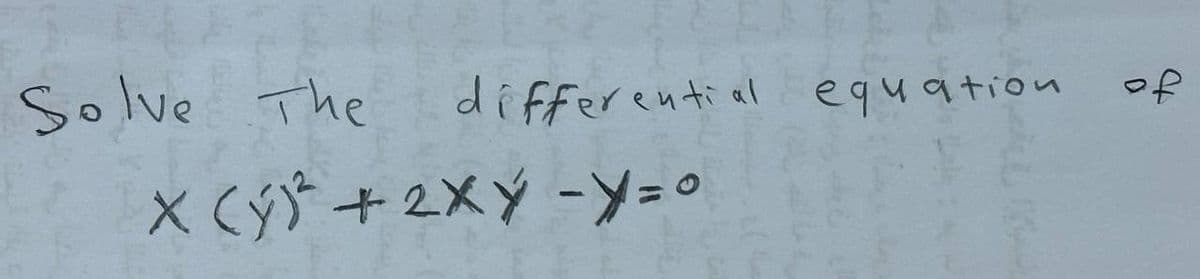 Solve The differential equation of
x (ý)² + 2xý - y = 0